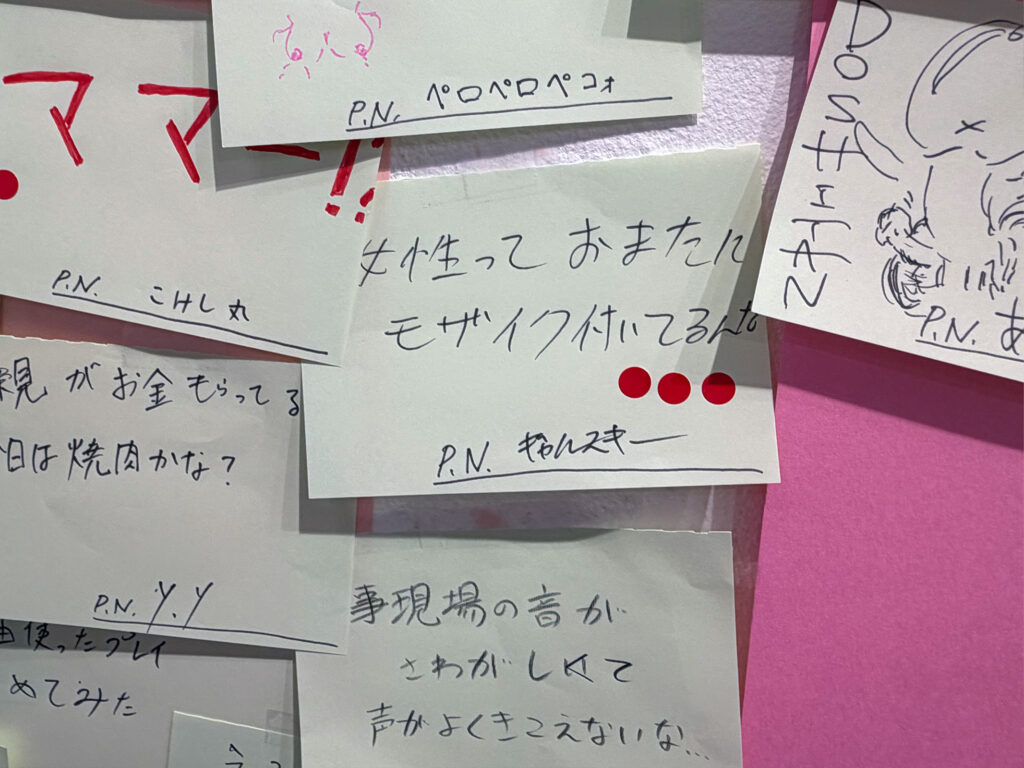 P.N. ペロペロペコォ
ママー!!
P.N. こけし丸
女性って おまたに
モザイク付いてるんだ
P.N. ギャルスキー
DOSHITAN
P.N. あ
親がお金もらってる
今日は焼肉かな?
P.N. Y.Y
使ったプレイ
めてみた
事現場の音が
さわがしくて
声がよくきこえないな...